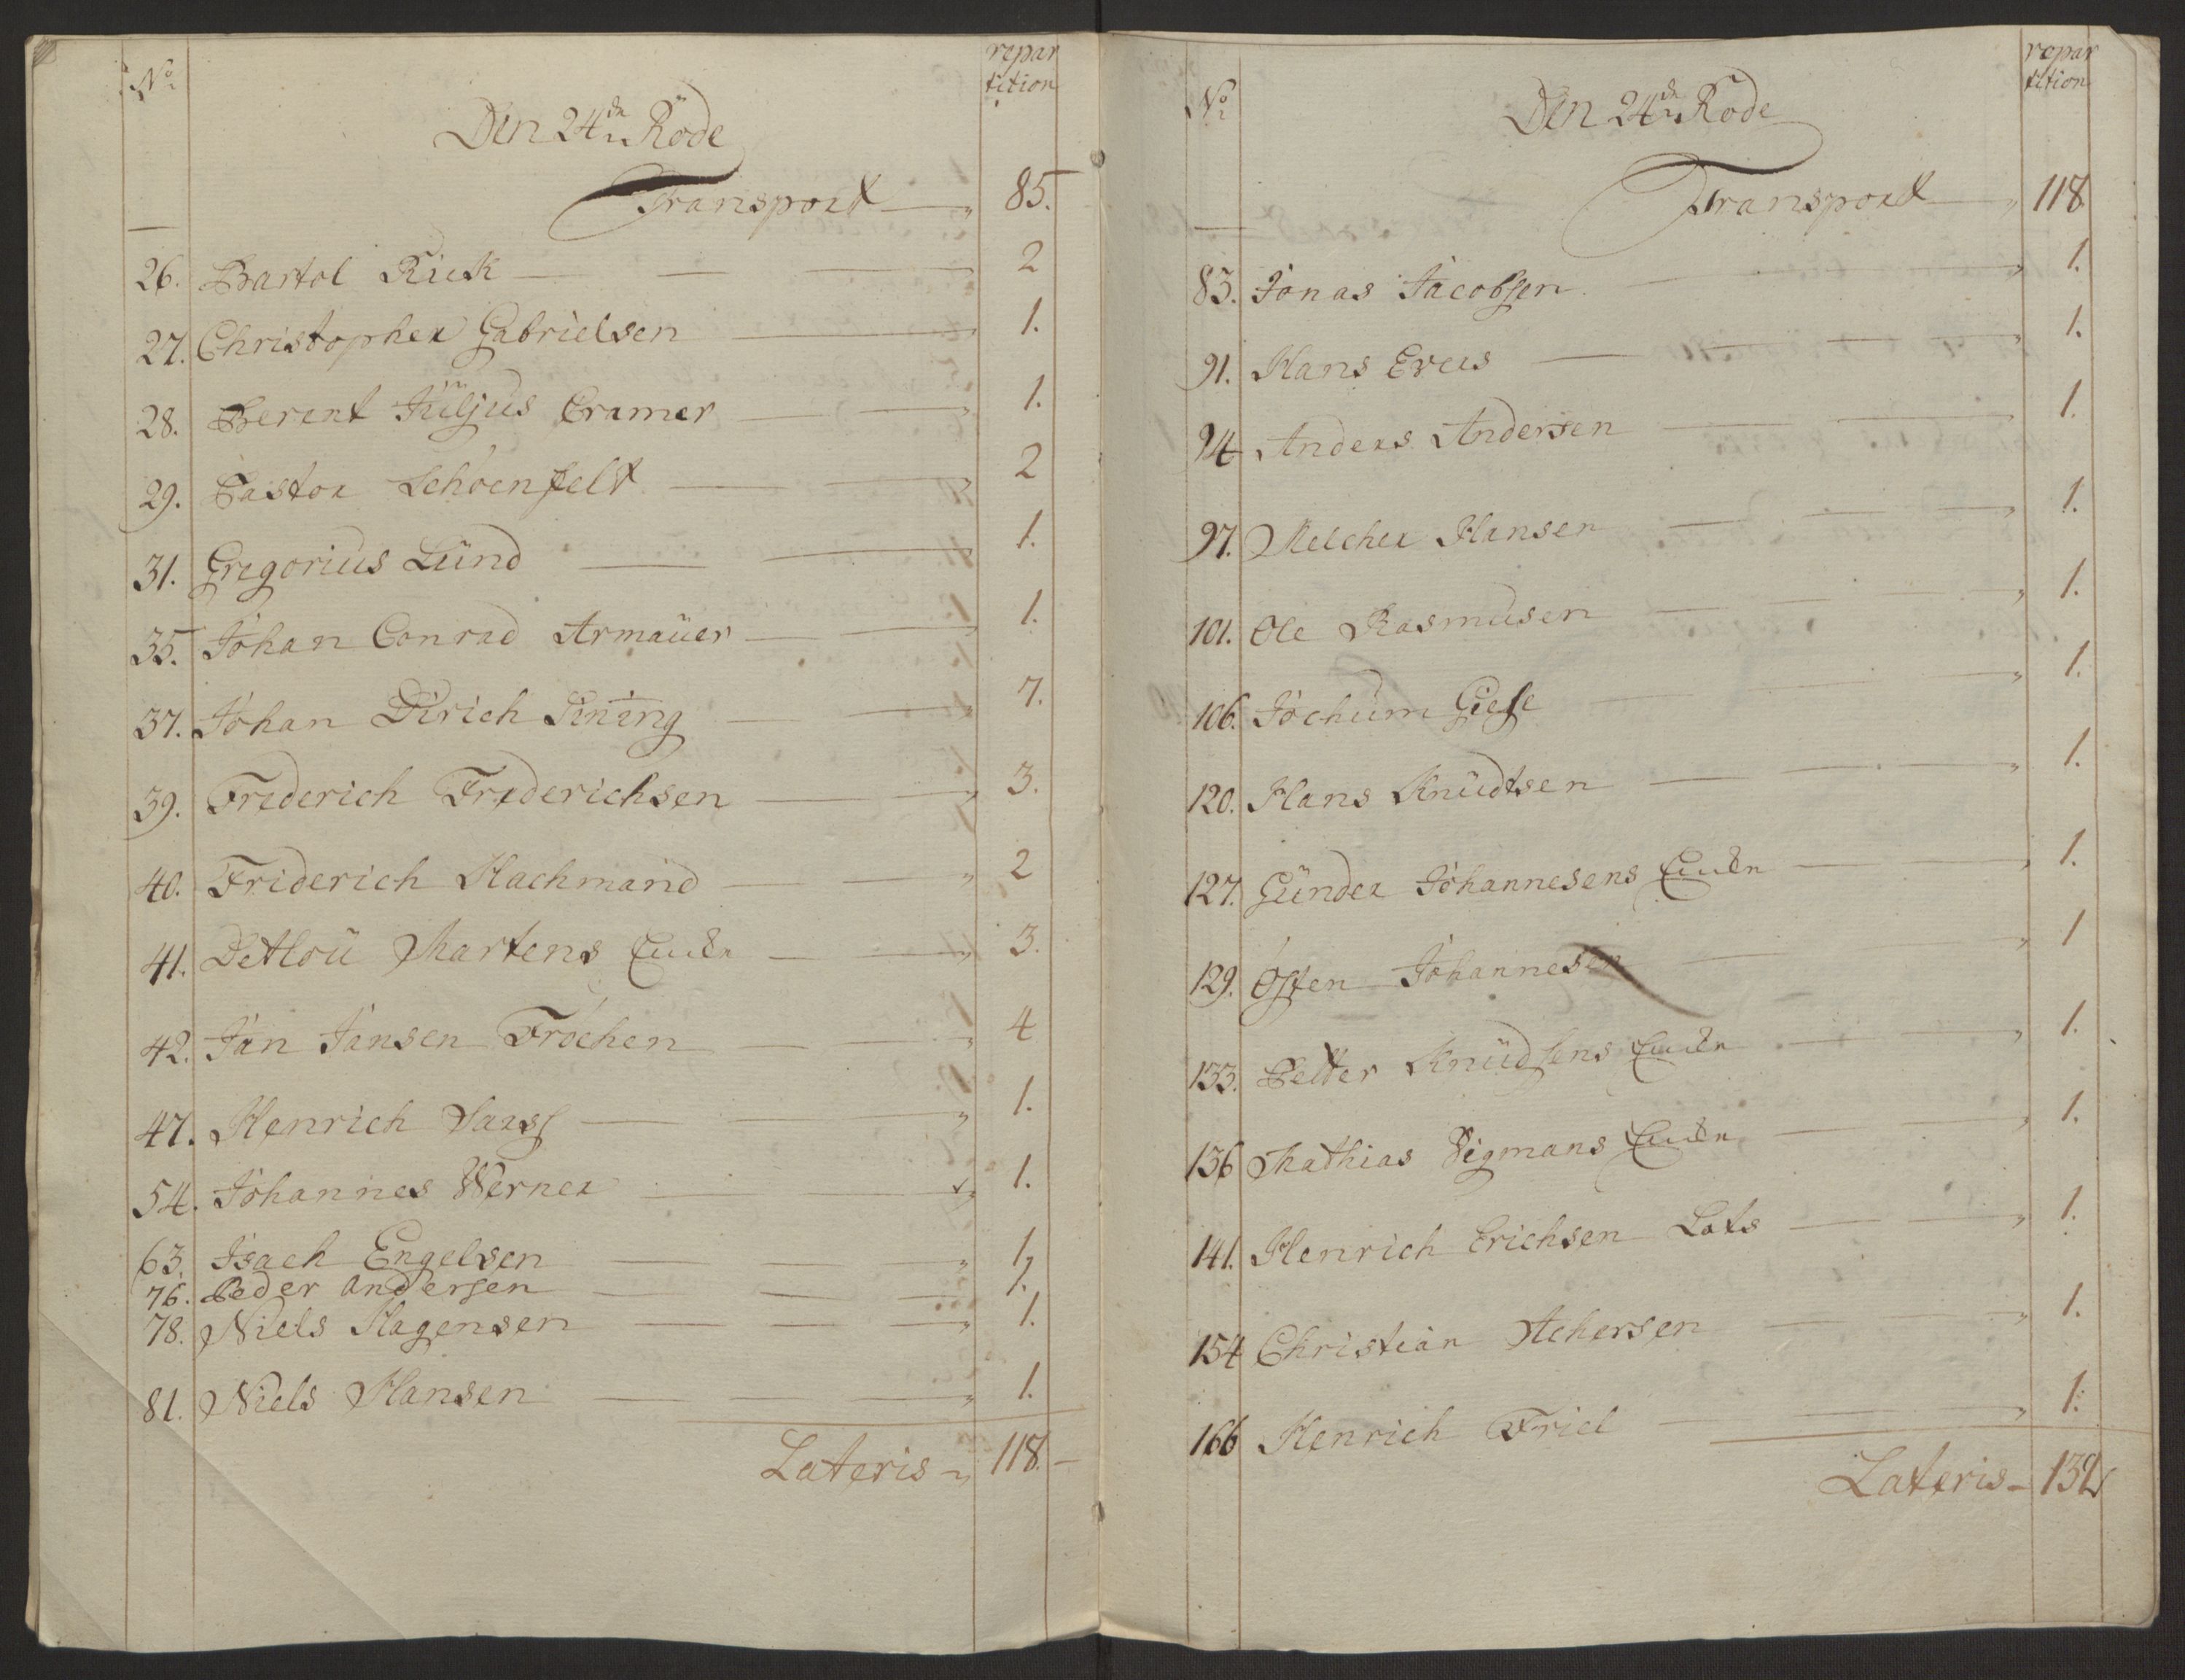 No
repar
tition
Den 24de Rode
Transport 85.
26. Bartol Rick 2
27. Christopher Gabrielsen 1.
28. Berent Juljus Cramer 1.
29. Pastor Schöenfelt 2
31. Gregorius Lund 1.
35. Johan Conrad Armauer 1.
37. Johan Dirich Sining 7.
39. Frederich Frederichsen 3.
40. Friderich Hachmand 2
41. Detlou Martens Enken 3.
42. Jan Jansen Fröchen 4
47. Henrich 1.
54. Johannes Werner 1.
63. Isach Engelsen 1,
76. Peder Andersen 1.
78. Niels Hagensen 1.
81. Niels Hansen 1.
Lateris 118.
No
repar
tition
Den 24de Rode
Transport 118
83. Jonas Jacobsen 1.
91. Hans Evers 1.
94 Anders Andersen 1.
97. Melcher Hansen 1.
101. Ole Rasmusen 1.
106. Jochum Giese 1.
120. Hans Knudtsen 1.
127. Gunder Johannesens Enken 1.
129. Østen Johannesen 1
133. Petter Knudsens Enken 1.
136 Mathias Sigmans Enken 1.
141. Henrich Erichsen Lots 1.
154 Christian Achersen 1.
166 Henrich Friel 1.
Lateris 132